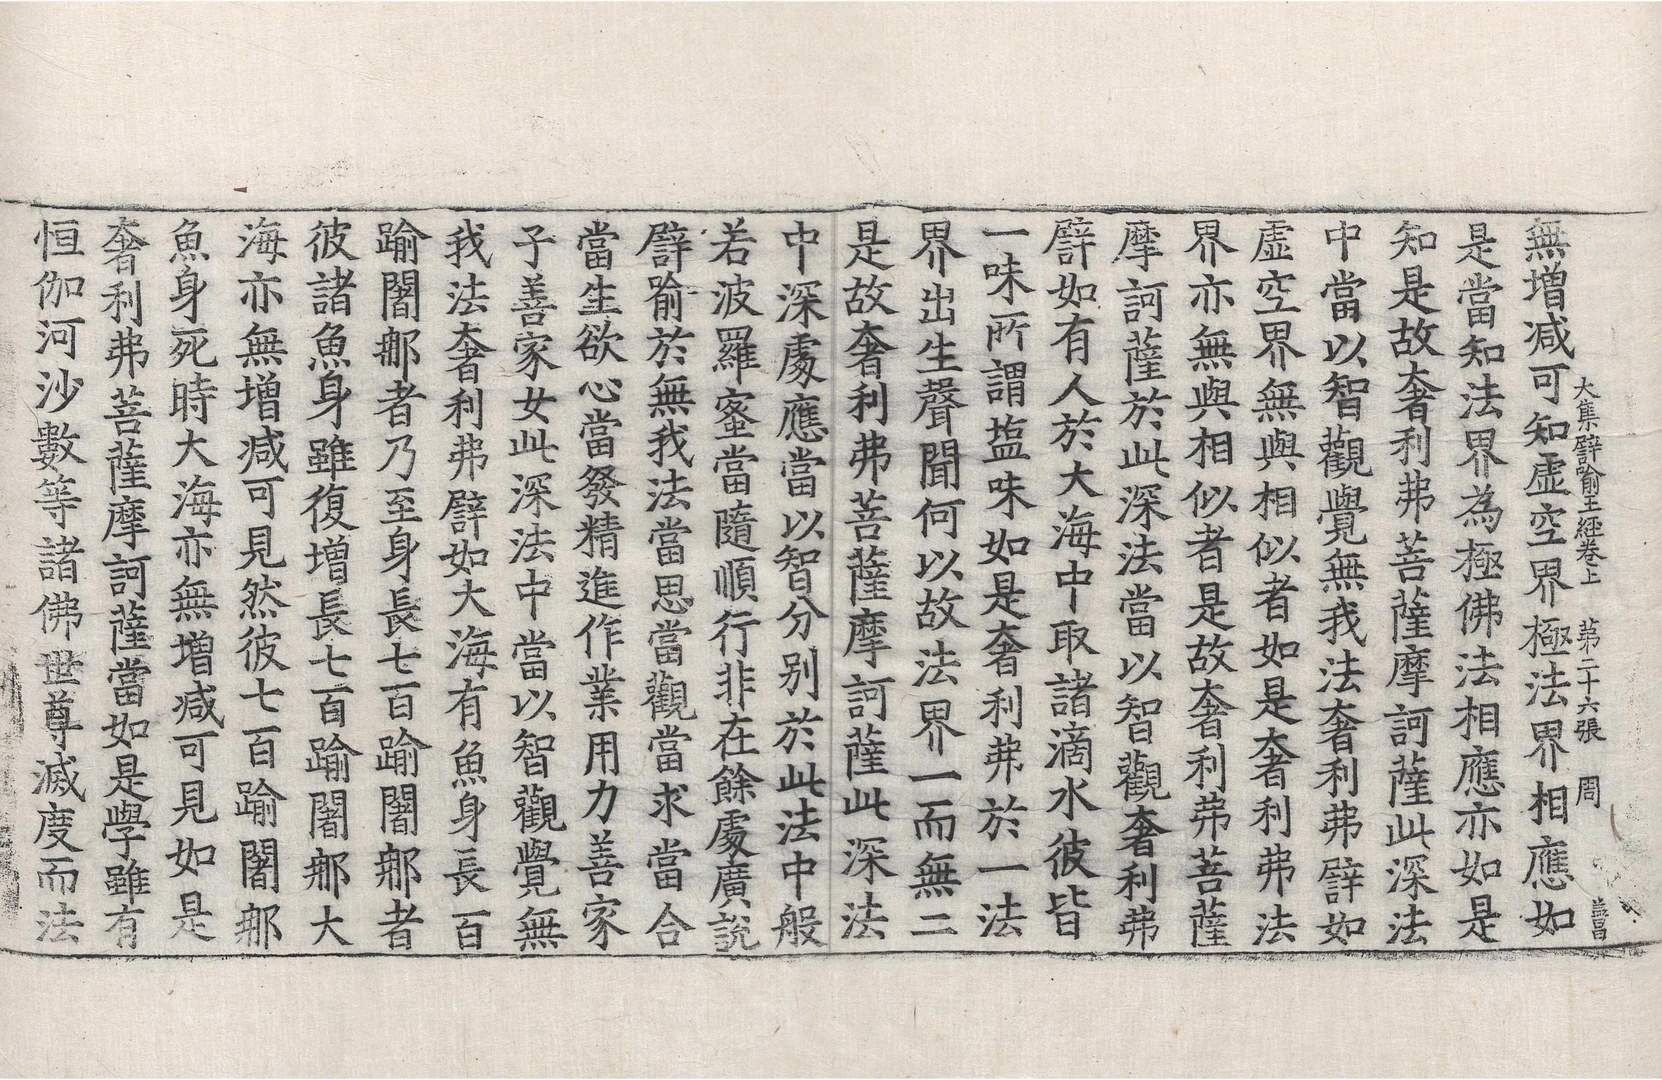 大集譬喻王經卷上　第二十六張　周
無增減可知虛空界極法界相應如
是當知法界為極佛法相應亦如是
知是故奢利弗菩薩摩訶薩此深法
中當以智觀覺無我法奢利弗譬如
虛空界無與相似者如是奢利弗法
界亦無與相似者是故奢利弗菩薩
摩訶薩於此深法當以智觀奢利弗
譬如有人於大海中取諸滴水彼皆
一味所謂塩味如是奢利弗於一法
界出生聲聞何以故法界一而無二
是故奢利弗菩薩摩訶薩此深法
中深處應當以智分別於此法中般
若波羅蜜當隨順行非在餘處廣說
譬喻於無我法當思當觀當求當合
當生欲心當發精進作業用力善家
子善家女此深法中當以智觀覺無
我法奢利弗譬如大海有魚身長百
踰闍那者乃至身長七百踰闍那者
彼諸魚身雖復增長七百踰闍那大
海亦無增減可見然彼七百踰闍那
魚身死時大海亦無增減可見如是
奢利弗菩薩摩訶薩當如是學雖有
恒伽河沙數等諸佛世尊滅度而法